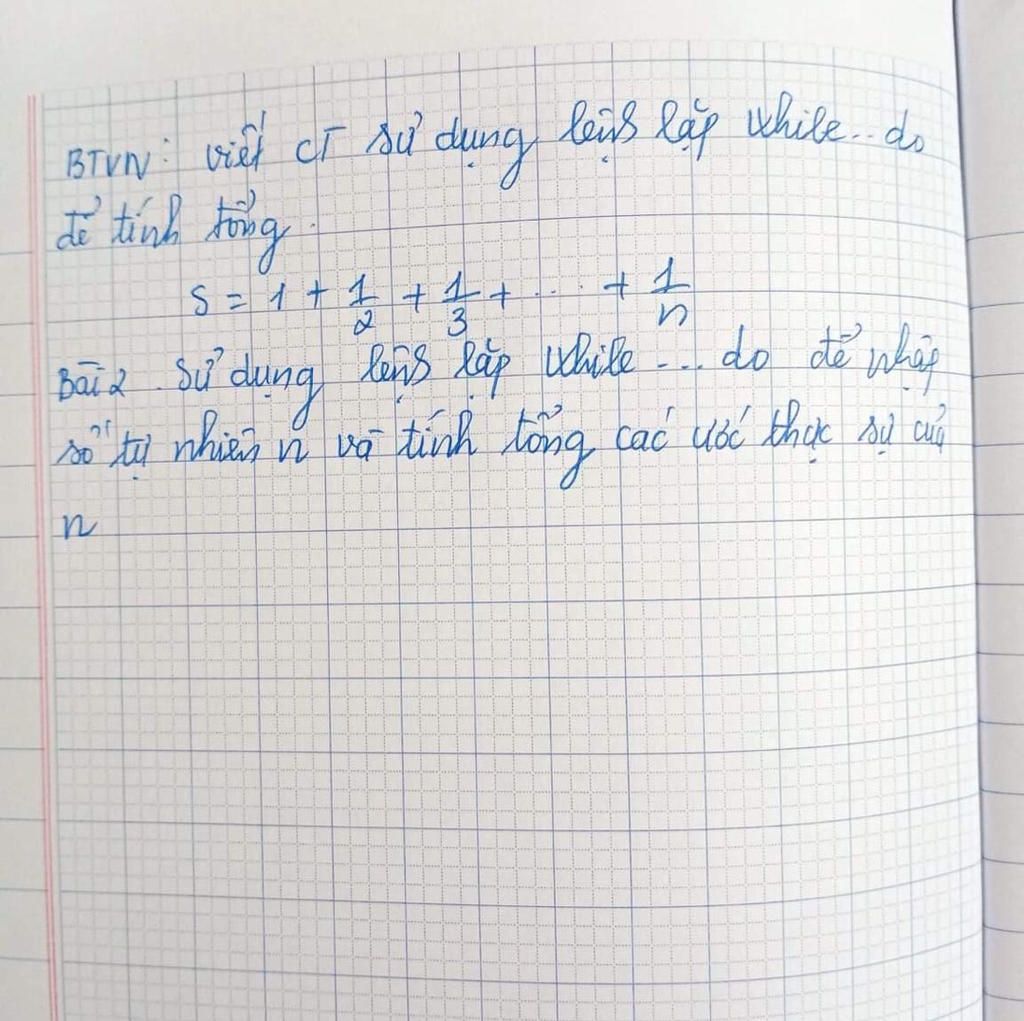 BTVN: viết CT sử dụng lệnh lặp while... do
để tính tổng.
S = 1 + 1/2 + 1/3 + ... + 1/n
Bài 2. Sử dụng lệnh lặp while ... do để nhập
số tự nhiên n và tính tổng các ước thực sự của
n